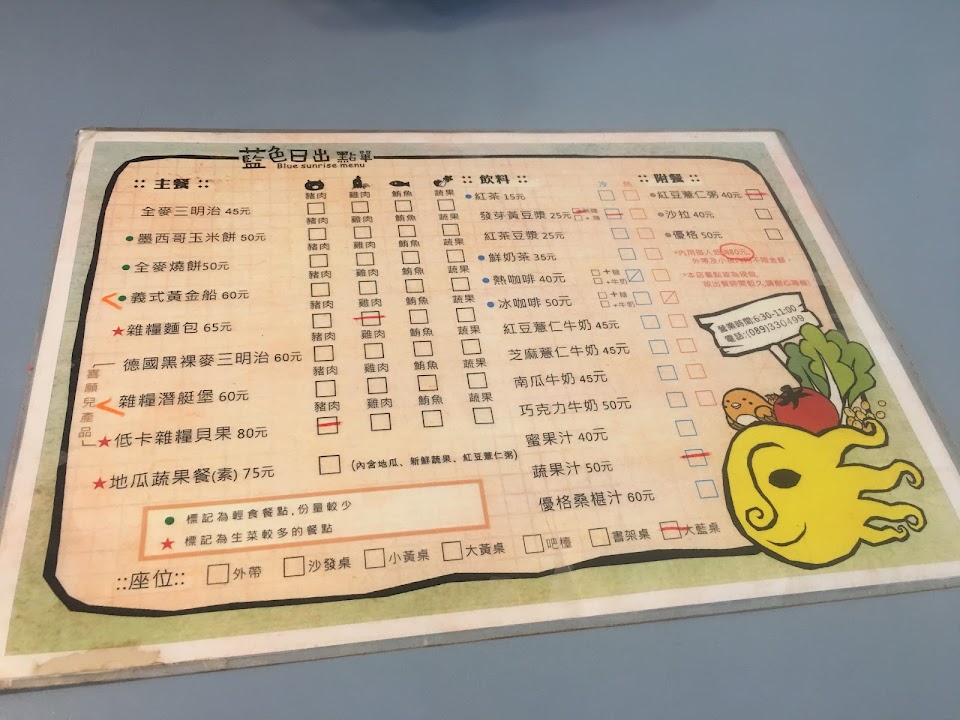 藍色日出 點單
Blue sunrise menu
:: 主餐 ::
豬肉 雞肉 鮪魚 蔬果
全麥三明治 45元
豬肉 雞肉 鮪魚 蔬果
● 墨西哥玉米餅 50元
豬肉 雞肉 鮪魚 蔬果
● 全麥燒餅50元
豬肉 雞肉 鮪魚 蔬果
● 義式黃金船 60元
豬肉 雞肉 鮪魚 蔬果
★ 雜糧麵包 65元
豬肉 雞肉 鮪魚 蔬果
德國黑裸麥三明治 60元
豬肉 雞肉 鮪魚 蔬果
雜糧潛艇堡 60元
豬肉 雞肉 鮪魚 蔬果
★ 低卡雜糧貝果 80元
★ 地瓜蔬果餐(素) 75元 (內含地瓜、新鮮蔬果、紅豆薏仁粥)
「喜願兒產品」
● 標記為輕食餐點,份量較少
★ 標記為生菜較多的餐點
:: 飲料 ::
冷 熱
● 紅茶 15元
發芽黃豆漿 25元
紅茶豆漿 25元
● 鮮奶茶 35元
● 熱咖啡 40元 +糖 +牛奶
● 冰咖啡 50元 +糖 +牛奶
紅豆薏仁牛奶 45元
芝麻薏仁牛奶 45元
南瓜牛奶 45元
巧克力牛奶 50元
蜜果汁 40元
蔬果汁 50元
優格桑椹汁 60元
:: 附餐 ::
● 紅豆薏仁粥 40元
● 沙拉 40元
● 優格 50元
營業時間:6:30-11:00
電話:(089)330499
::座位:: 外帶 沙發桌 小黃桌 大黃桌 吧檯 書架桌 大藍桌